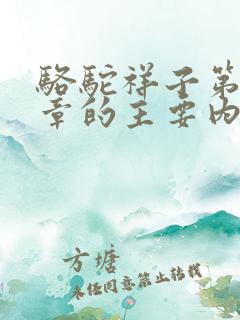 骆驼祥子第
章的主要内
方塘
未经同意禁止转载